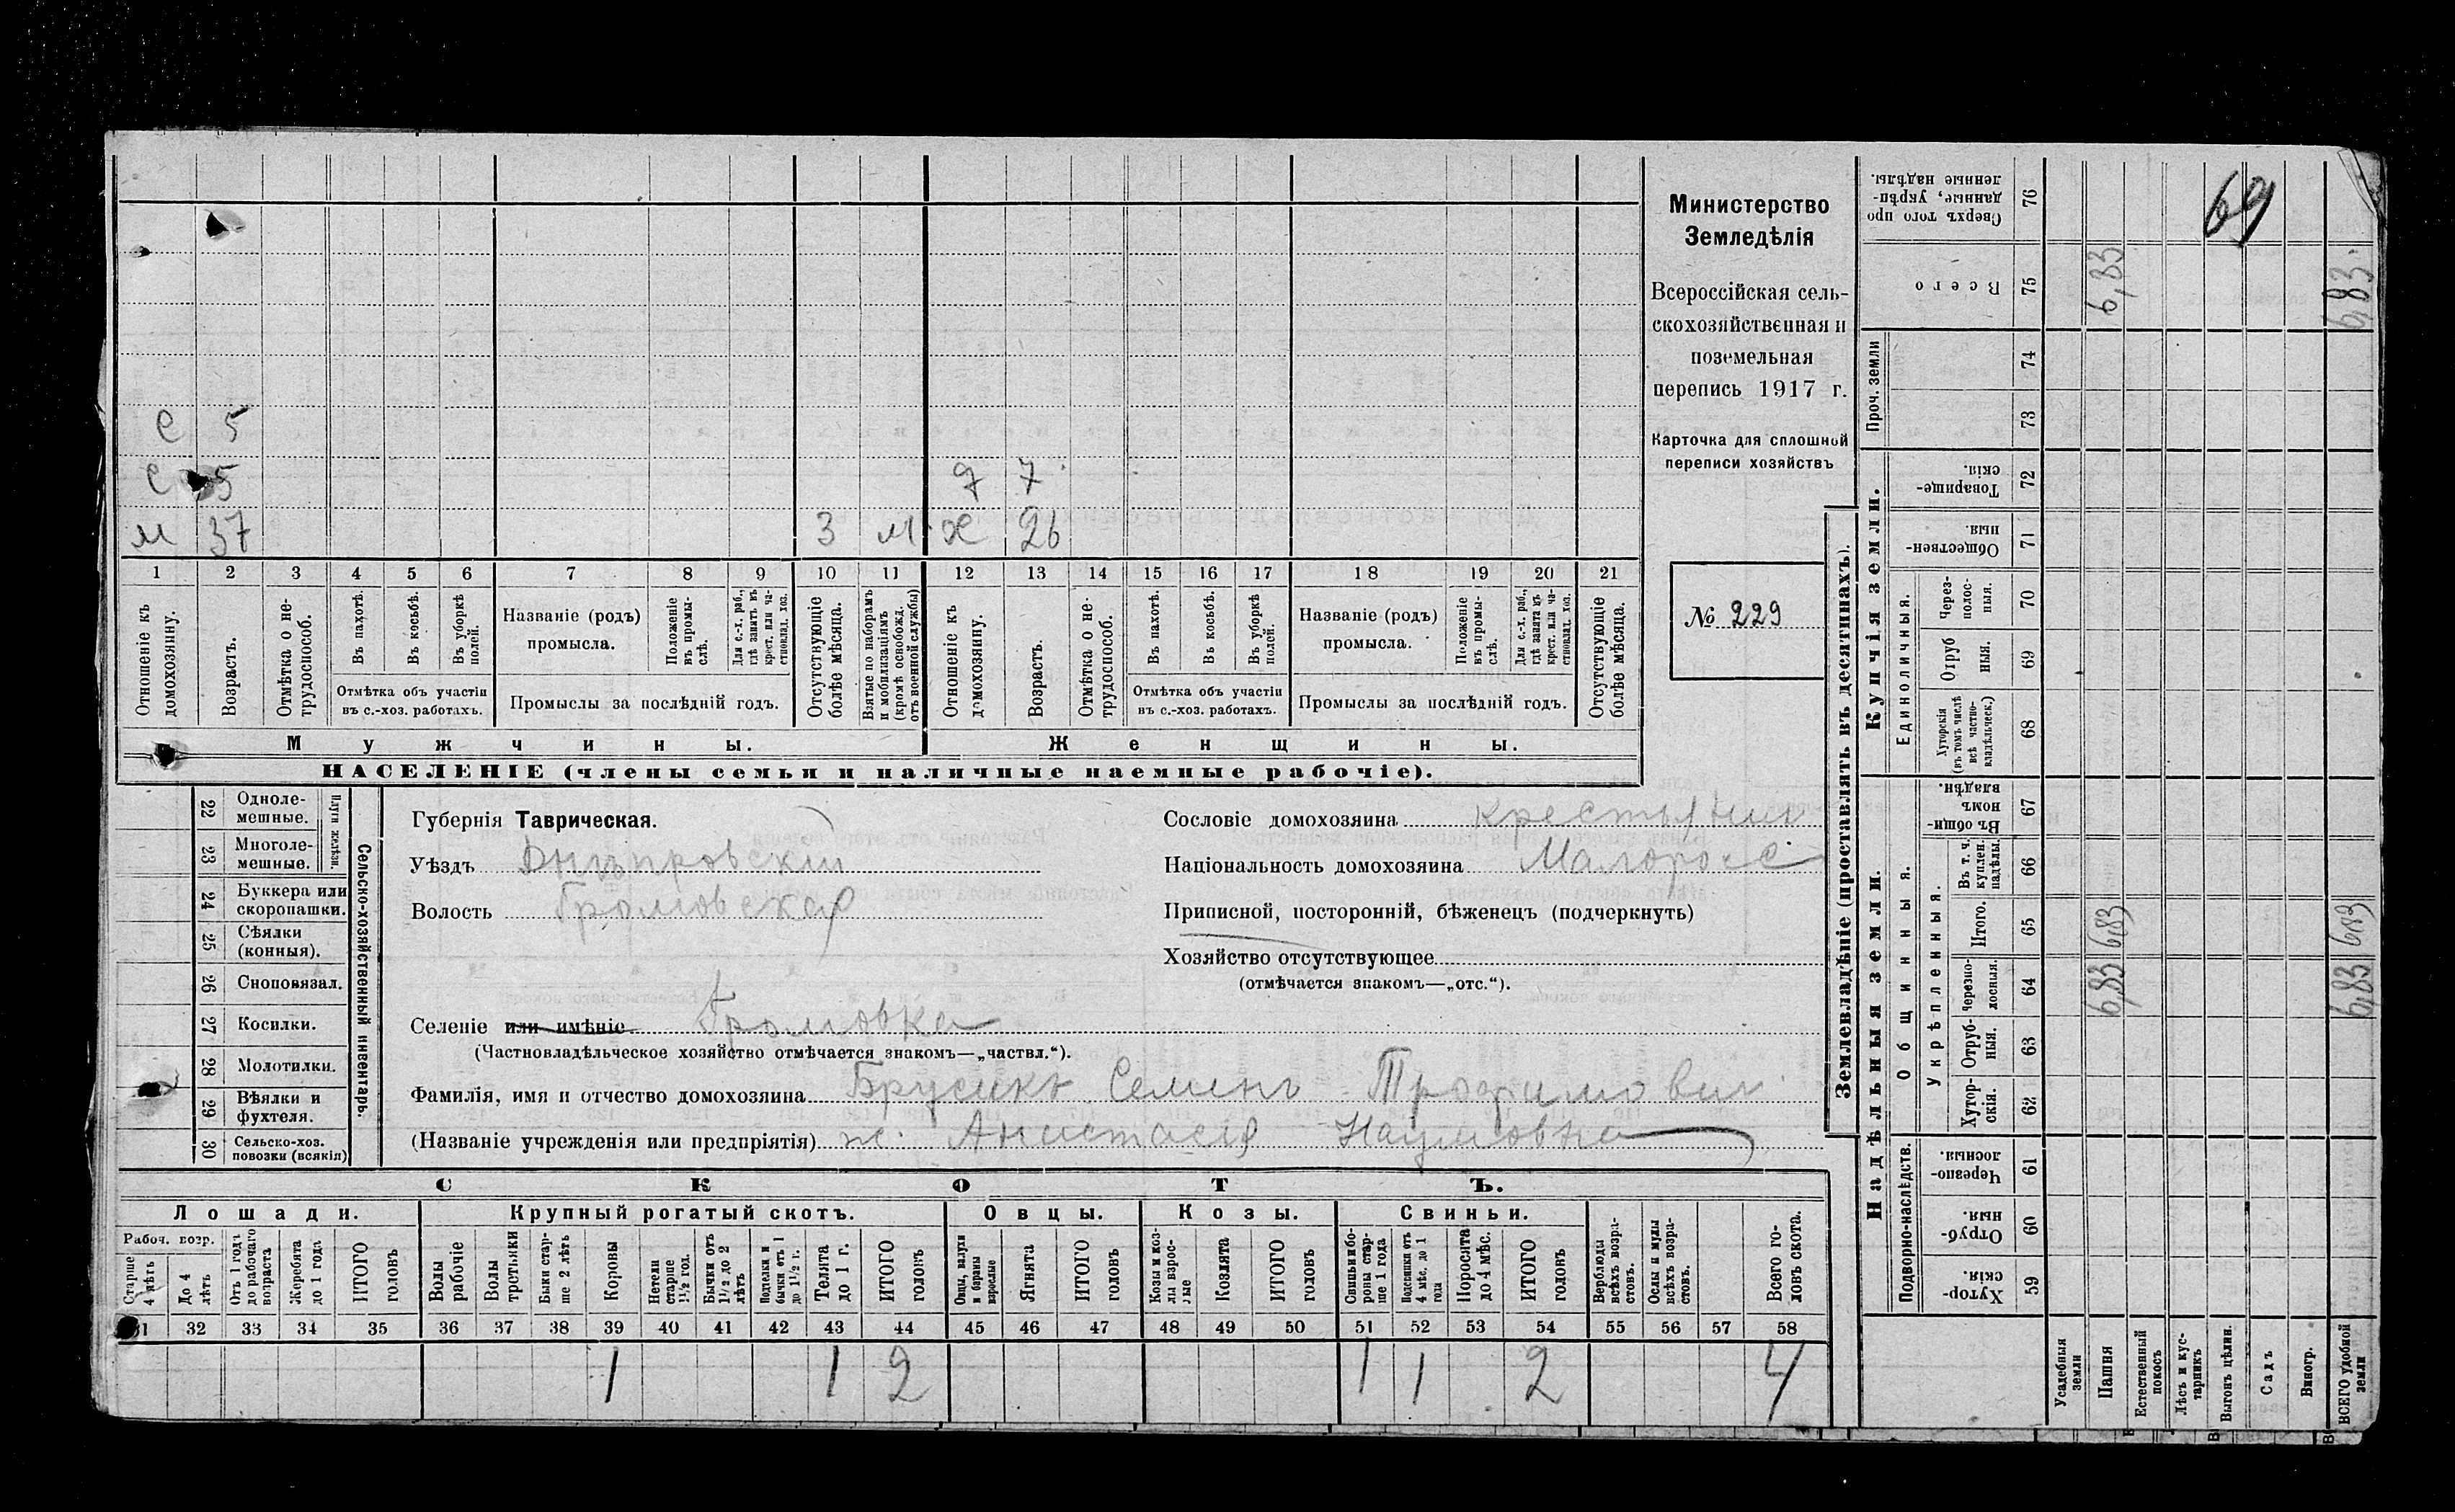 69
Министерство
Земледѣлія
Всероссійская сель-
скохозяйственная и
поземельная
перепись 1917 г.
Карточка для сплошной
переписи хозяйствъ
№ 229
с 5
с 5 д 7
м 37 3 м ж 26
1 2 3 4 5 6 7 8 9 10 11 12 13 14 15 16 17 18 19 20 21
Отношеніе къ домохозяину.
Возрастъ.
Отмѣтка о не-трудоспособ.
Въ пахотѣ.
Въ косьбѣ.
Въ уборкѣ полей.
Отмѣтка объ участіи въ с.-хоз. работахъ.
Названіе (родъ) промысла.
Положеніе въ промы-слѣ.
Для с.-х. раб., гдѣ занятъ въ крест. или ча-стновлад. хоз.
Промыслы за послѣдній годъ.
Отсутствующіе болѣе мѣсяца.
Взятые по наборамъ и мобилизаціямъ (кромѣ освобожд. отъ военной службы)
Отношеніе къ домохозяину.
Возрастъ.
Отмѣтка о не-трудоспособ.
Въ пахотѣ.
Въ косьбѣ.
Въ уборкѣ полей.
Отмѣтка объ участіи въ с.-хоз. работахъ.
Названіе (родъ) промысла.
Положеніе въ промы-слѣ.
Для с.-х. раб., гдѣ занята въ крест. или ча-стновлад. хоз.
Промыслы за послѣдній годъ.
Отсутствующіе болѣе мѣсяца.
Мужчины.
Женщины.
НАСЕЛЕНІЕ (члены семьи и наличные наемные рабочіе).
22 Одноле-мешные.
23 Многоле-мешные.
Плуги желѣзн.
24 Буккера или скоропашки.
25 Сѣялки (конныя).
26 Сноповязал.
27 Косилки.
28 Молотилки.
29 Вѣялки и фухтеля.
30 Сельско-хоз. повозки (всякія)
Сельско-хозяйственный инвентарь.
Губернія Таврическая.
Уѣздъ Днѣпровскій
Волость Громовская
Сословіе домохозяина крестьянин
Національность домохозяина Малоросс
Приписной, посторонній, бѣженецъ (подчеркнуть)
Хозяйство отсутствующее
(отмѣчается знакомъ—„отс.“).
Селеніе или имѣніе Громовка
(Частновладѣльческое хозяйство отмѣчается знакомъ—„частвл.“).
Фамилія, имя и отчество домохозяина Брусикъ Семенъ Трофимович
(Названіе учрежденія или предпріятія) ж. Анастасія Наумовна
СКОТЪ.
Лошади. Крупный рогатый скотъ. Овцы. Козы. Свиньи.
Рабоч. возр.
Старше 4 лѣтъ
До 4 лѣтъ
Отъ 1 года до рабочаго возраста
Жеребята до 1 года
ИТОГО головъ
Волы рабочіе
Волы третьяки
Быки стар-ше 2 лѣтъ
Коровы
Нетели старше 1½ год.
Бычки отъ 1½ до 2 лѣтъ
Подтелки и бычки отъ 1 до 1½ г.
Телята до 1 г.
ИТОГО головъ
Овцы, валухи и бараны взрослые
Ягнята
ИТОГО головъ
Козы и коз-лы взрос-лые
Козлята
ИТОГО головъ
Свиньи и бо-ровы стар-ше 1 года
Подсвинки отъ 4 мѣс. до 1 года
Поросята до 4 мѣс.
ИТОГО головъ
Верблюды всѣхъ возра-стовъ.
Ослы и мулы всѣхъ возра-стовъ.
Всего го-ловъ скота.
31 32 33 34 35 36 37 38 39 40 41 42 43 44 45 46 47 48 49 50 51 52 53 54 55 56 57 58
1 1 2 1 1 2 4
Землевладѣніе (проставлять въ десятинахъ).
Купчія земли.
Надѣльныя земли.
76 Сверхъ того про данные, укрѣп-ленные надѣлы.
75 Всего 6,83 6,83
Проч. земли
74
73
72 Товарище-скія.
71 Обществен-ныя.
Единоличныя.
70 Через-полос-ныя.
69 Отруб ныя.
68 Хуторскія (въ томъ числѣ всѣ частно-владѣльческ.)
Общинныя.
67 Въ общи-номъ владѣн.
Укрѣпленныя.
66 Въ т. ч. куплен. надѣлы.
65 Итого. 6,83 6,83
64 Черезпо-лосная. 6,83 6,83
63 Отруб-ныя.
62 Хутор-скія.
Подворно-наслѣдств.
61 Черезпо-лосныя.
60 Отруб-ныя.
59 Хутор-скія.
Усадебныя земли
Пашня
Естественный покосъ
Лѣсъ и кус-тарникъ
Выгонъ цѣлин.
Садъ
Виногр.
ВСЕГО удобной земли